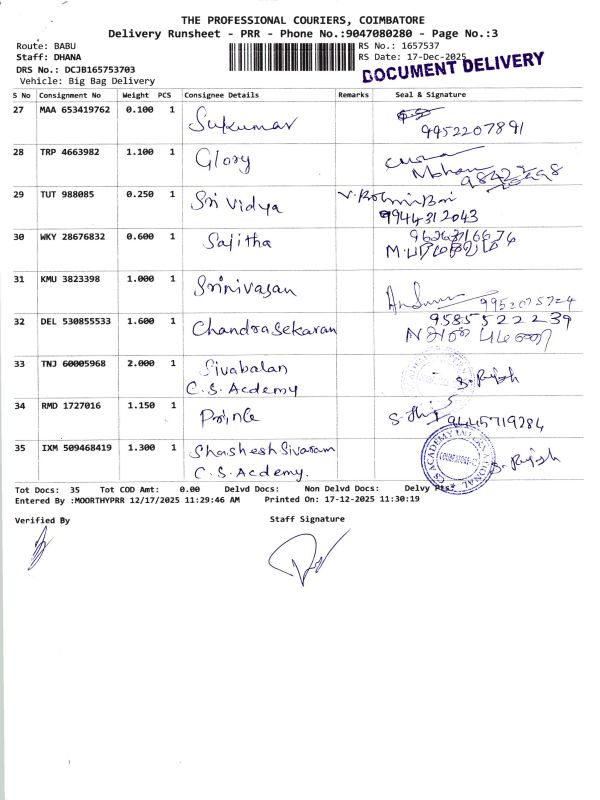 THE PROFESSIONAL COURIERS, COIMBATORE
Delivery Runsheet - PRR - Phone No.:9047080280 - Page No.:3
Route: BABU
Staff: DHANA
DRS No.: DCJB165753703
Vehicle: Big Bag Delivery
RS No.: 1657537
RS Date: 17-Dec-2025
DOCUMENT DELIVERY
S No Consignment No Weight PCS Consignee Details Remarks Seal & Signature
27 MAA 653419762 0.100 1 Sukumar 9952207891
28 TRP 4663982 1.100 1 Glory Mohan
29 TUT 988085 0.250 1 Sri Vidya
9944312043
30 WKY 28676832 0.600 1 Sajitha
31 KMU 3823398 1.000 1 Srinivasan 9952075724
32 DEL 530855533 1.600 1 Chandrasekaran 9585522239
33 TNJ 60005968 2.000 1 Sivabalan
C.S. Acdemy
34 RMD 1727016 1.150 1 Prince 9445719284
35 IXM 509468419 1.300 1 Shashesh Sivaram
C.S. Acdemy.
CS ACADEMY INTERNATIONAL
Tot Docs: 35 Tot COD Amt: 0.00 Delvd Docs: Non Delvd Docs: Delvy Pts:
Entered By :MOORTHYPRR 12/17/2025 11:29:46 AM Printed On: 17-12-2025 11:30:19
Verified By Staff Signature